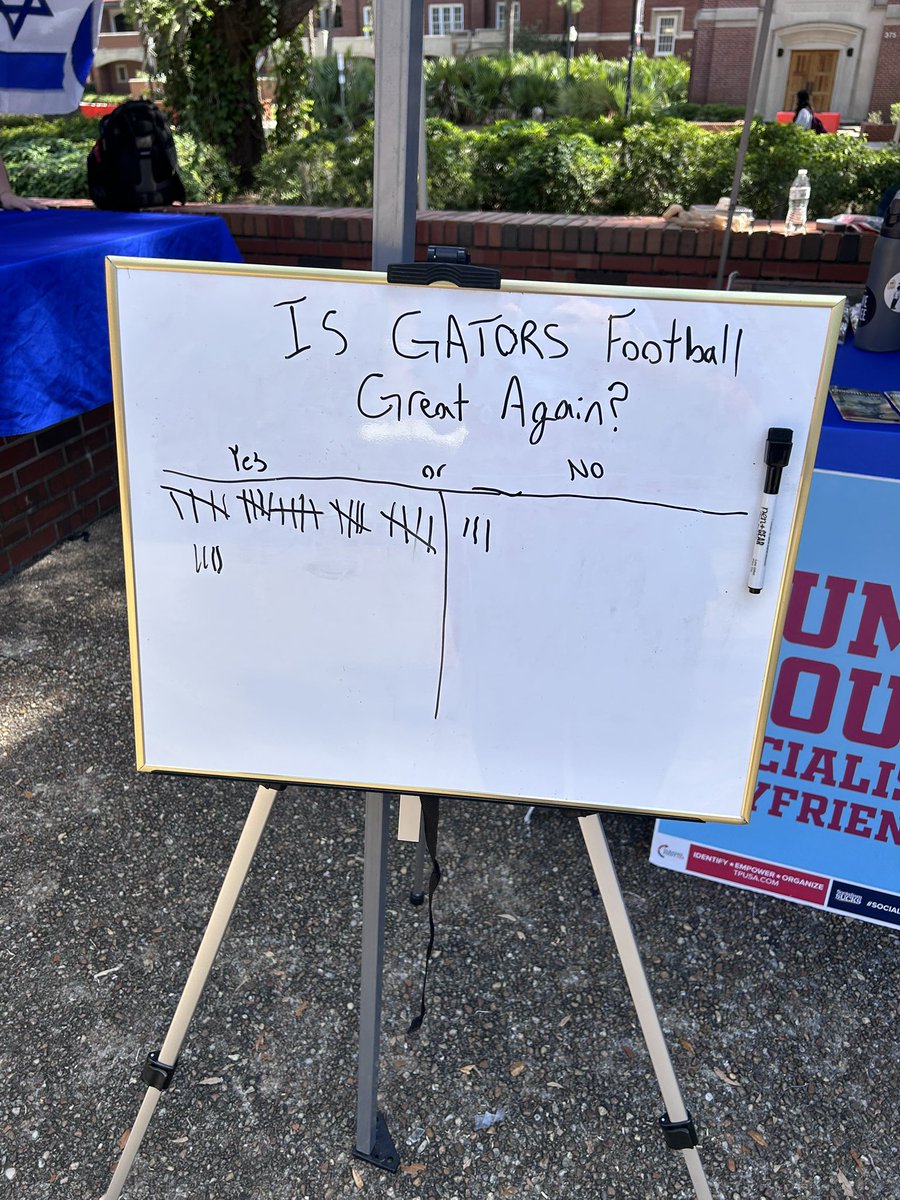 Is GATORS Football
Great Again?
Yes or No
375
UM
OU
CIALIS
YFRIEN
IDENTIFY ★ EMPOWER ★ ORGANIZE
TPUSA.COM
SUCKS
#SOCIAL